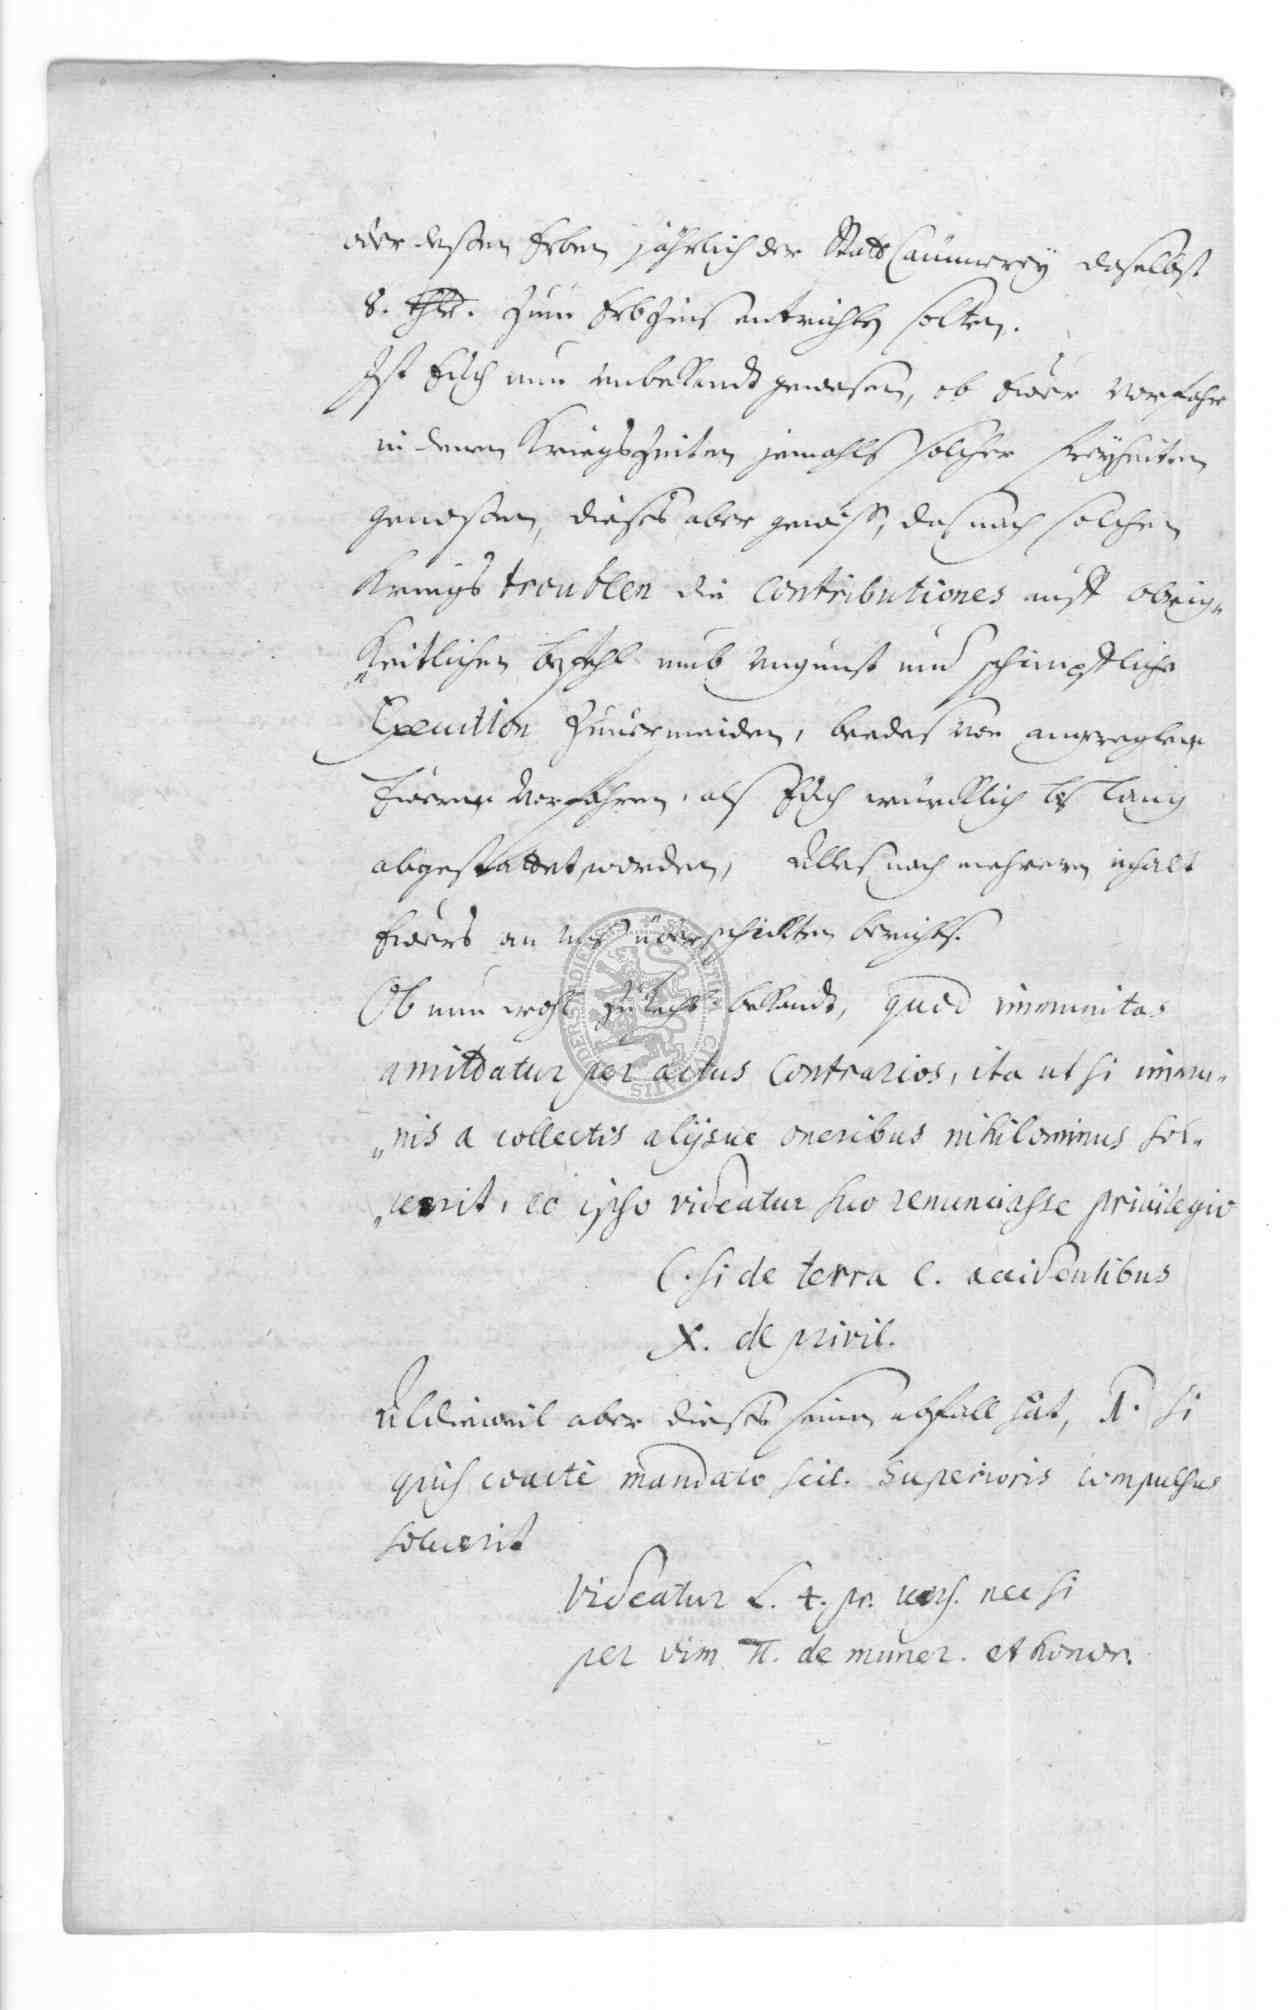 oder deßen Erben jährlich der Statt Cämmerey daselbst
8. Thlr. zum Erbzins entrichten solten.
Ist Euch nun unbekandt gewesen, ob Ewer Vorfahr
in denen Kriegszeiten jemahls solcher Freyheiten
genoßen, dieses aber gewiß, das nach solchen
Kriegs troublen die Contributiones auff obrig„
„keitlichen befehl umb ungunst und schimpffliche
Execution zuuermeiden, beedes von angeregten
Ewern Vorfahren, als Euch würcklich
abgestattet worden, Alles nach mehrern inhalt
Ewers an Uns überschickten berichts.
Ob nun wohl zu Recht bekandt, quod immunitas
amittatur per actus Contrarios, ita ut si immu„
„nis a collectis alijsue oneribus nihilominus sol„
„uerit, eo ipso videatur suo renunciasse priuilegio
C. si de terra c. accedentibus
X. de privil.
Alldieweil aber dieses seinen abfall hat, si
quis coactè mandato scil. Superioris compulsus
soluerit
Videatur L. 4. pr. vers. nec si
per vim π. de muner. et honor.